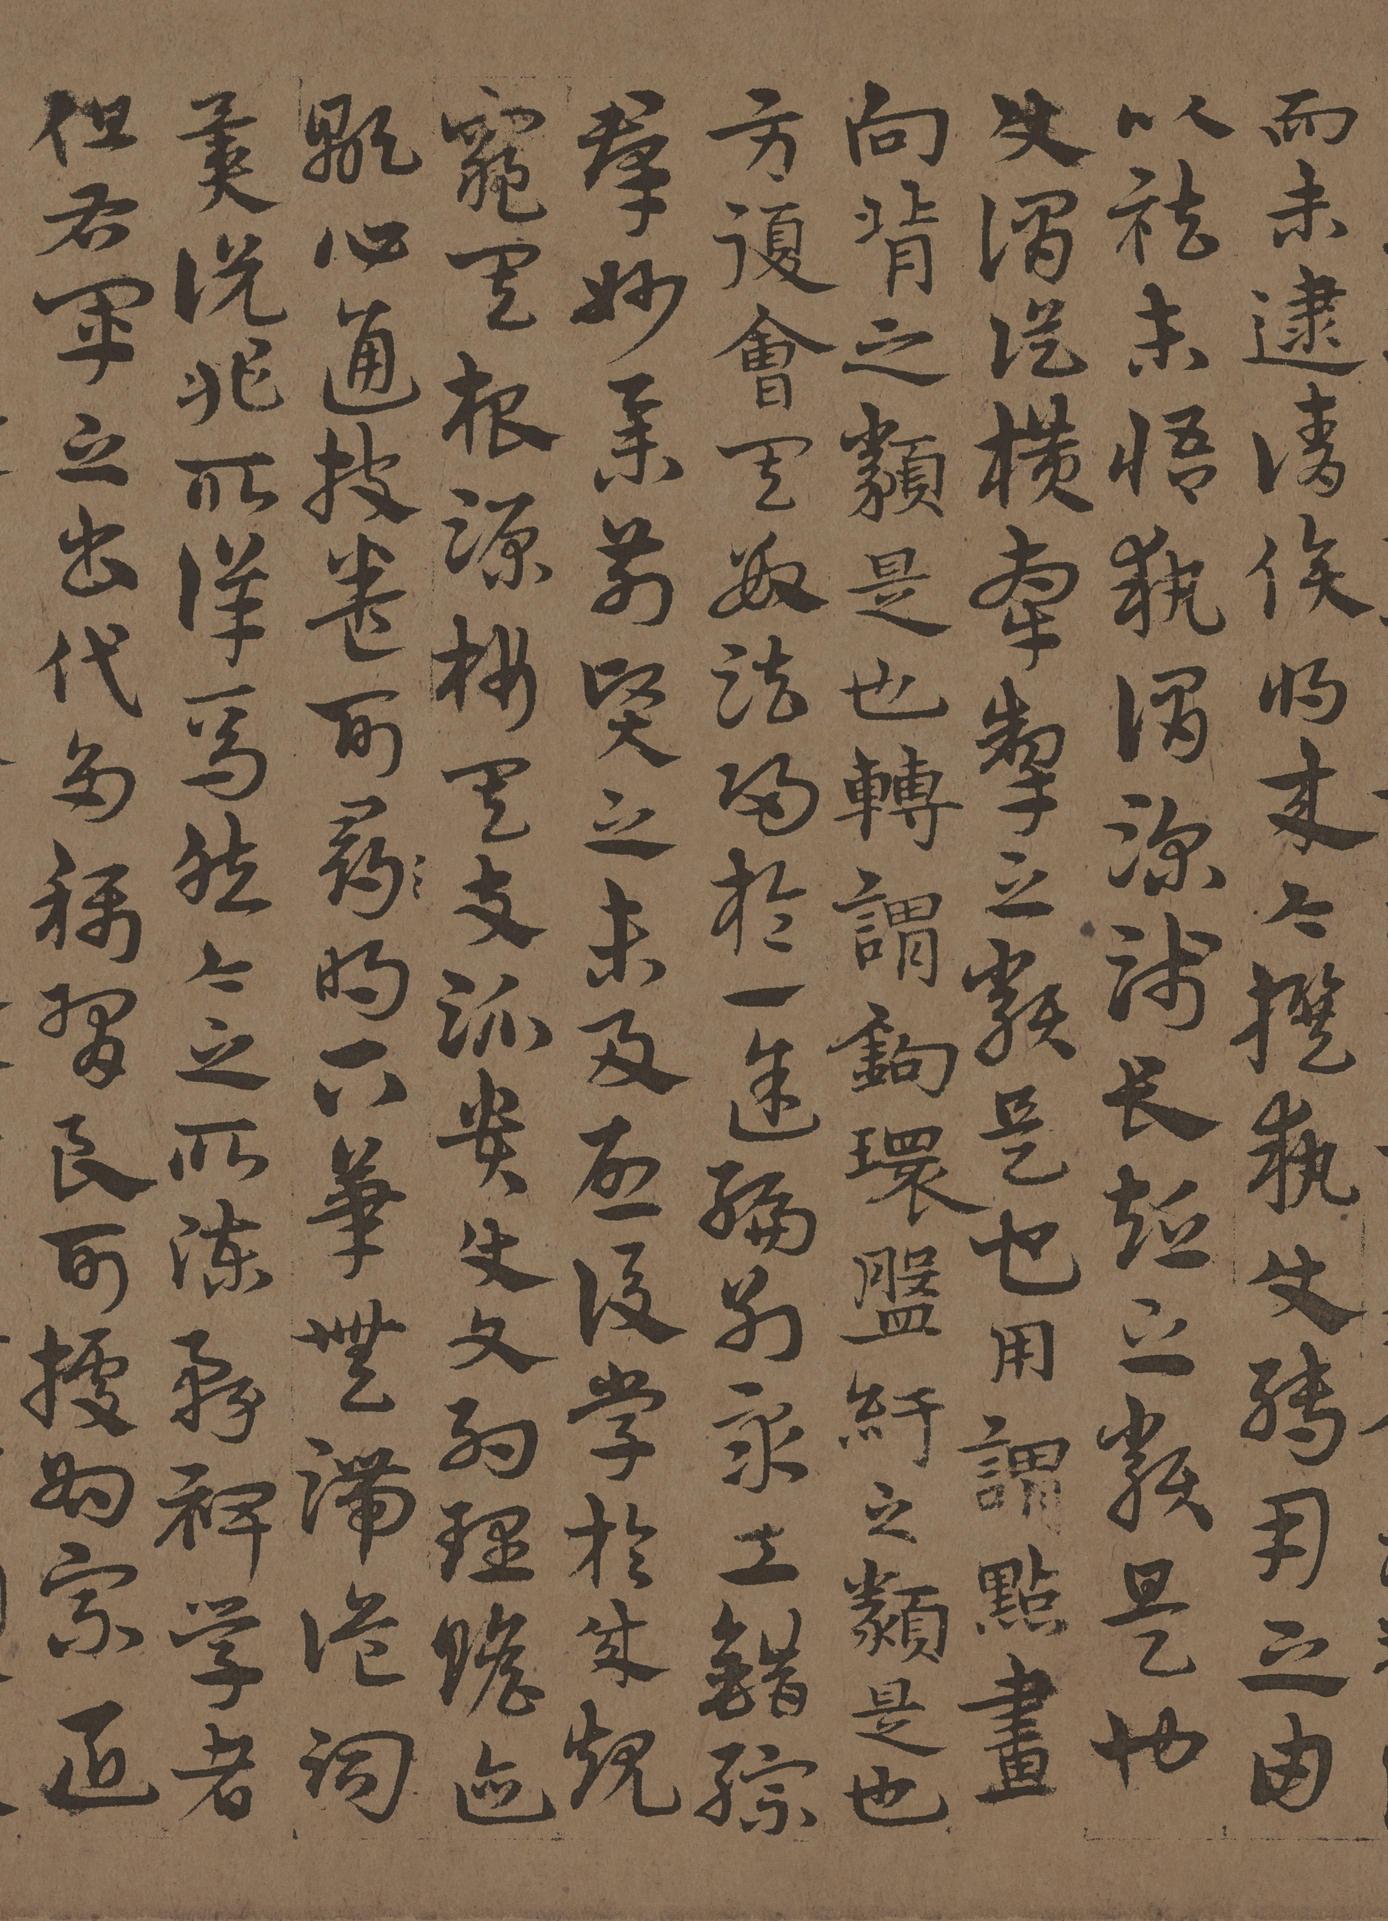 而未逮請俟將来今撰執使轉用之由
以祛未悟執謂深淺長短之類是也
使謂縱橫牽掣之類是也用謂點畫
向背之類是也轉謂鉤環盤紆之類是也
方復會其數法歸於一途編列衆工錯綜
群妙舉前賢之未及啟後學於成規
窺其根源析其支派貴使文約理贍迹
顯心通披卷可尋明下筆無滯詭詞
異說非所詳焉然今之所陳務裨學者
但右軍之書代多稱習良可據為宗匠